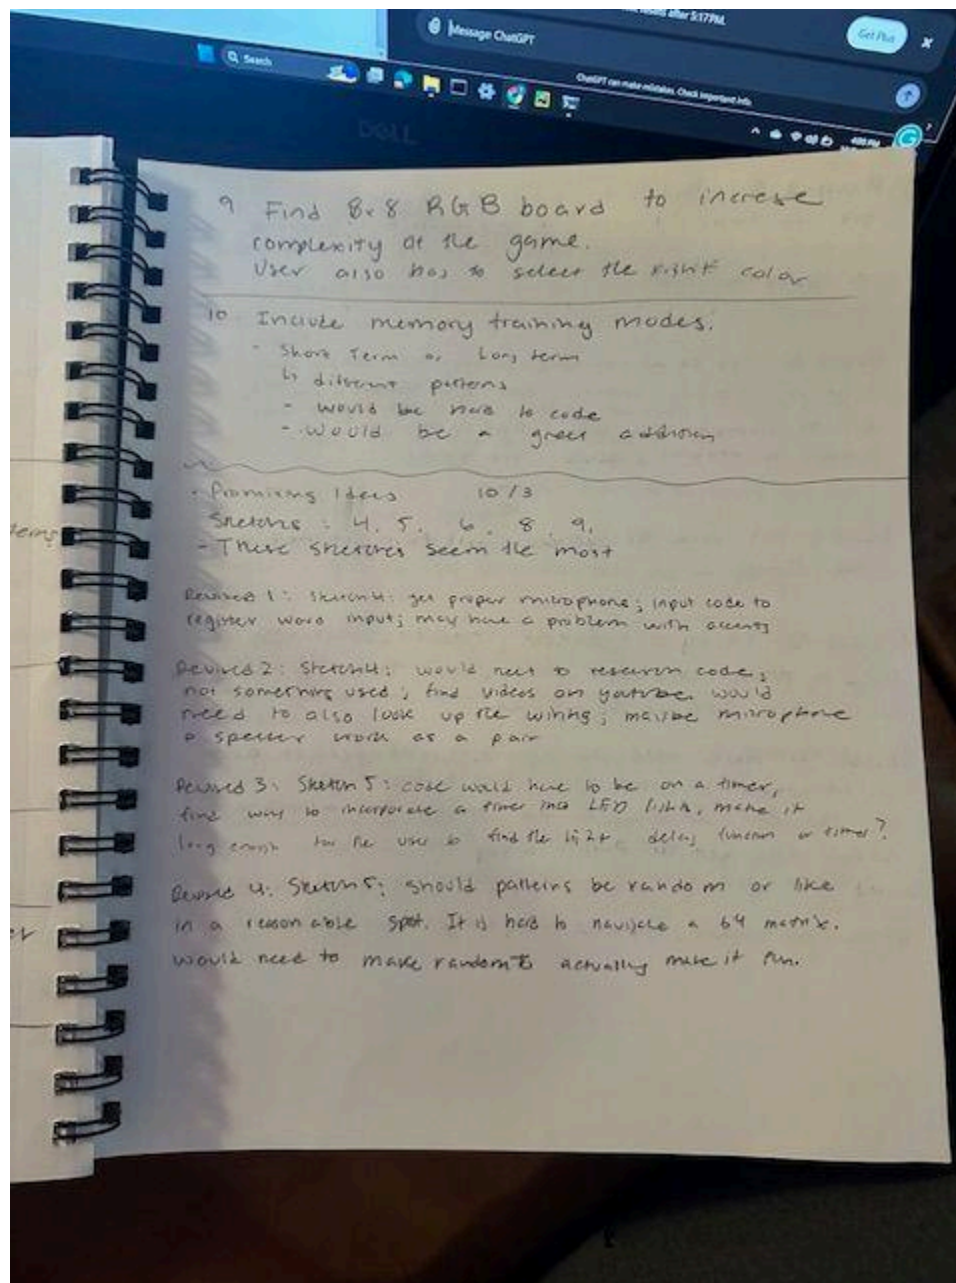 results after 5:17PM.
Message ChatGPT
Get Plus
x
Search
ChatGPT can make mistakes. Check important info.
DELL
4:00 PM
9 Find 8x8 RGB board to increse
complexity of the game.
User also has to select the right color
10 Include memory training modes.
- Short Term or Long term
↳ different patterns
- would be hard to code
- would be a great addition
- Promising Ideas 10/3
Sketchs: 4, 5, 6, 8, 9.
- These sketches seem the most
Revised 1: Sketch 4: get proper microphone; input code to
register word input; may have a problem with accents
Revised 2: Sketch 4: would need to research code;
not something used; find videos on youtube. would
need to also look up the wiring; maybe microphone
a speaker work as a pair
Revised 3: Sketch 5: code would have to be on a timer,
find way to incorporate a timer into LED lights, make it
long enough for the user to find the light. delay function or timer?
Revised 4: Sketch 5: should patterns be random or like
in a reasonable spot. It is hard to navigate a 64 matrix.
would need to make random to actually make it fun.